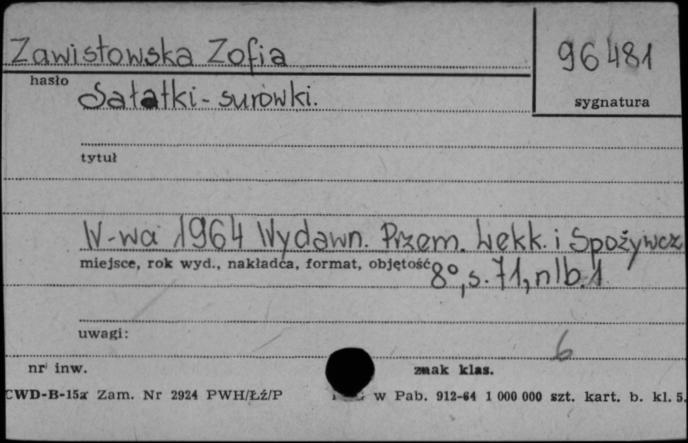 Zawistowska Zofia
96481
hasło
sygnatura
Sałatki - surówki.
tytuł
W-wa 1964 Wydawn. Przem. Lekk. i Spożywcz
miejsce, rok wyd., nakładca, format, objętość
8°, s. 71, nlb. 1
uwagi:
6
nr inw.
znak klas.
CWD-B-15a Zam. Nr 2924 PWH/Łź/P
w Pab. 912-64 1 000 000 szt. kart. b. kl. 5.